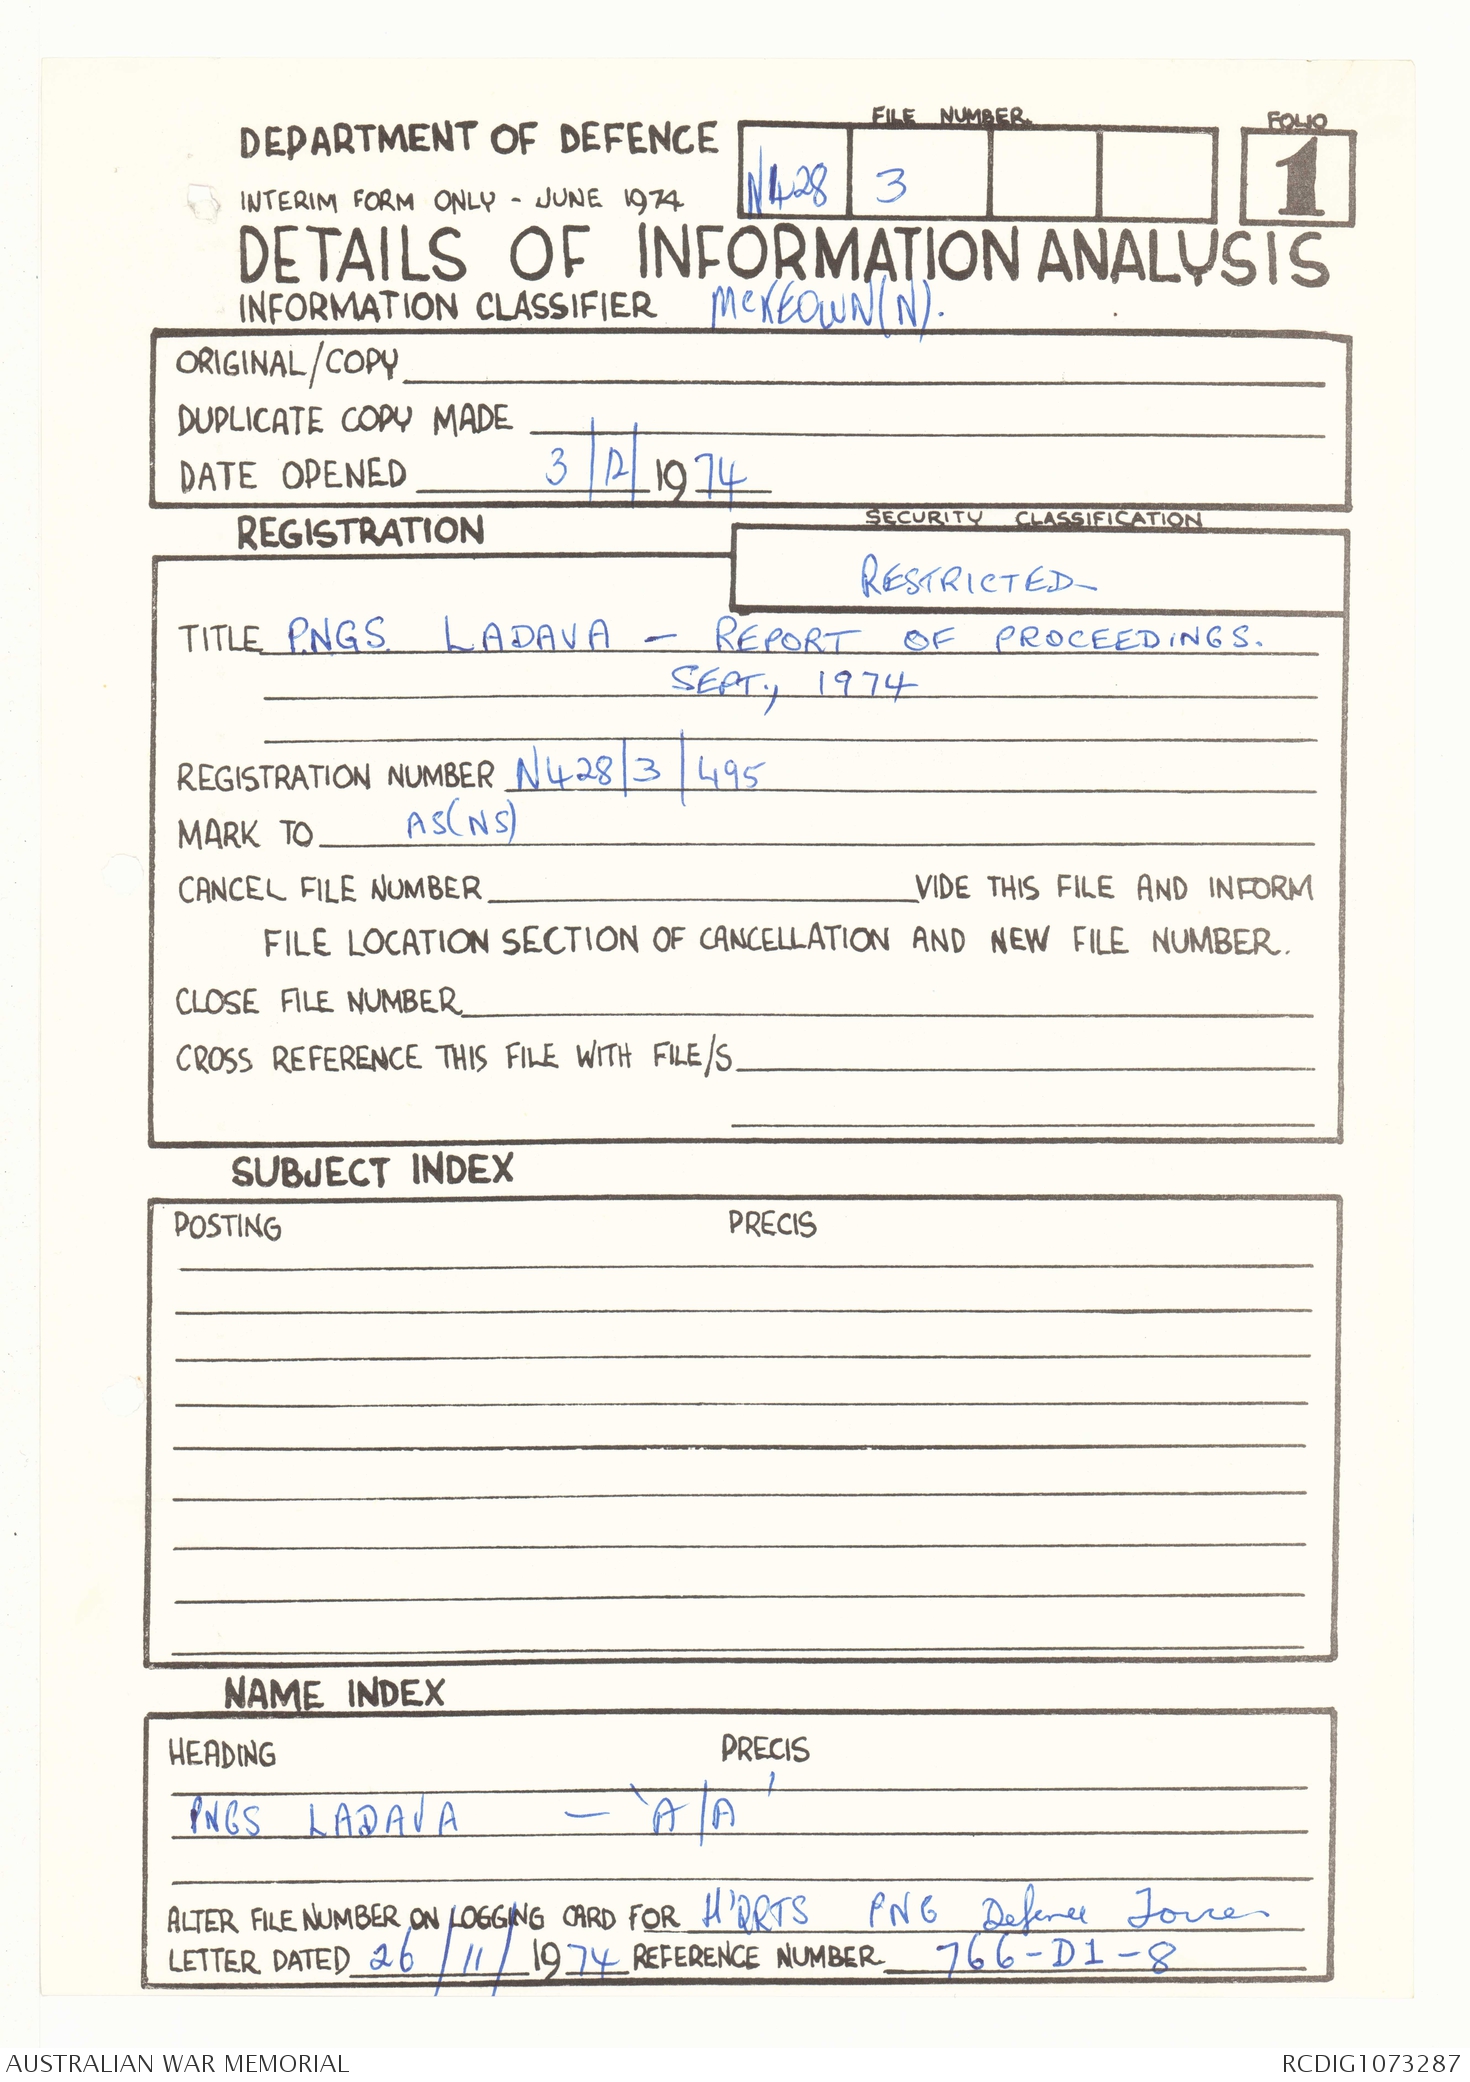 DEPARTMENT OF DEFENCE
FILE NUMBER.
FOLIO
N428 3
1
INTERIM FORM ONLY - JUNE 1974
DETAILS OF INFORMATION ANALYSIS
INFORMATION CLASSIFIER McKEOWN(N).
ORIGINAL/COPY
DUPLICATE COPY MADE
DATE OPENED 3/12/1974
REGISTRATION
SECURITY CLASSIFICATION
RESTRICTED
TITLE PNGS LADAVA - REPORT OF PROCEEDINGS.
SEPT., 1974
REGISTRATION NUMBER N428/3/495
MARK TO AS(NS)
CANCEL FILE NUMBER VIDE THIS FILE AND INFORM
FILE LOCATION SECTION OF CANCELLATION AND NEW FILE NUMBER.
CLOSE FILE NUMBER
CROSS REFERENCE THIS FILE WITH FILE/S
SUBJECT INDEX
POSTING PRECIS
NAME INDEX
HEADING PRECIS
PNGS LADAVA - 'A/A'
ALTER FILE NUMBER ON LOGGING CARD FOR H'QRTS PNG Defence Forces
LETTER DATED 26/11/1974 REFERENCE NUMBER 766-D1-8
AUSTRALIAN WAR MEMORIAL
RCDIG1073287